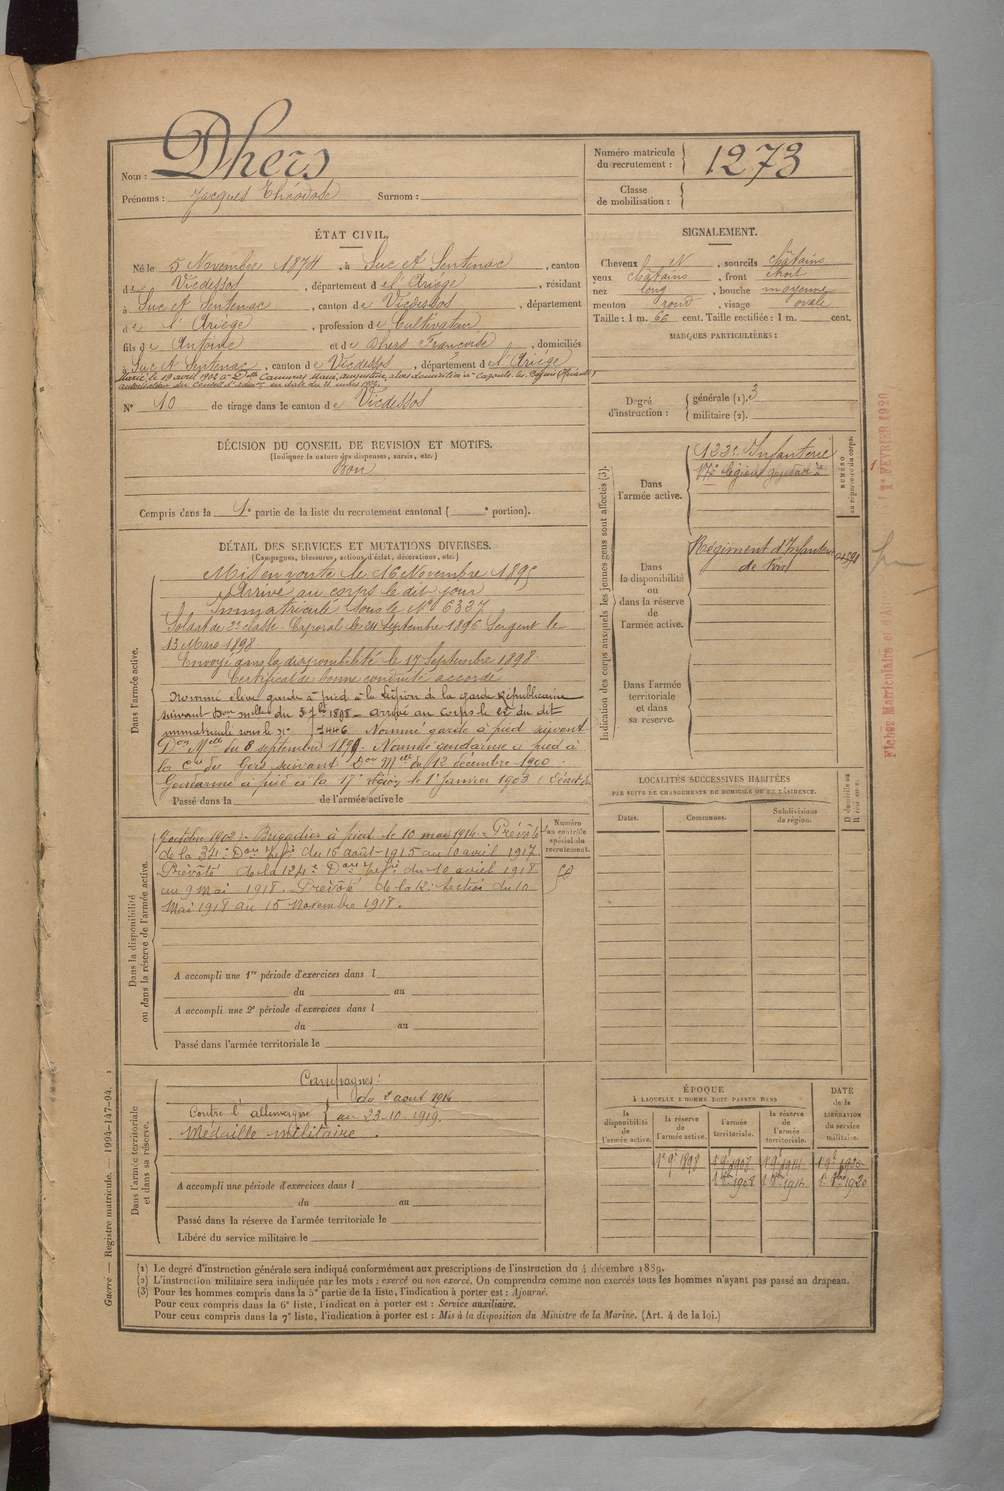 Nom : Dhers
Prénoms : Jacques Théodose Surnom :
Numéro matricule du recrutement : 1273
Classe de mobilisation :
ÉTAT CIVIL.
Né le 5 Novembre 1874, à Suc et Sentenac, canton
de Vicdessos, département de l'Ariège, résidant
à Suc et Sentenac, canton de Vicdessos, département
de l'Ariège, profession de Cultivateur
fils de Antoine et de Dhers Françoise, domiciliés
à Suc et Sentenac, canton de Vicdessos, département de l'Ariège
Marié le 19 avril 1902 à Dlle Marie, augustine,
N° 10 de tirage dans le canton de Vicdessos
SIGNALEMENT.
Cheveux , sourcils châtains
yeux châtains, front étroit
nez long, bouche moyenne
menton rond, visage ovale
Taille : 1 m. 66 cent. Taille rectifiée : 1 m. cent.
MARQUES PARTICULIÈRES :
Degré d'instruction : générale (1). 3
militaire (2).
DÉCISION DU CONSEIL DE REVISION ET MOTIFS.
(Indiquer la nature des dispenses, sursis, etc.)
Bon
Compris dans la 1e partie de la liste du recrutement cantonal ( e portion).
DÉTAIL DES SERVICES ET MUTATIONS DIVERSES.
(Campagnes, blessures, actions d'éclat, décorations, etc.)
Dans l'armée active.
Mis en route le 16 Novembre 1895
Arrivé au corps le dit jour
Immatriculé sous le N° 6337
Soldat de 2e classe. Caporal le 24 septembre 1896 Sergent le
13 Mars 1898
Envoyé dans la disponibilité le 17 Septembre 1898
Certificat de bonne conduite accordé
Nommé élève garde à pied à la légion de la garde Républicaine
suivant Don Mlle du 5 7bre 1898 - arrivé au corps le 22 du dit
immatriculé sous le n° 7446. Nommé garde à pied suivant
Don Melle du 8 septembre 1899. Nommé gendarme à pied à
la Cie du Gers suivant Don Melle du 12 décembre 1900
Gendarme à pied à la 17e légion le 1er janvier 1903
Passé dans la de l'armée active le
Dans la disponibilité ou dans la réserve de l'armée active.
9 octobre 1902). Brigadier à pied le 10 mars 1914. Prévôté
de la 34e Don du 16 août 1915 au 10 avril 1917.
Prévôté de la 124e Don du 10 avril 1918
au 9 Mai 1918. Prévôté de la 12e section du 10
Mai 1918 au 15 Novembre 1918.
A accompli une 1re période d'exercices dans l
du au
A accompli une 2e période d'exercices dans l
du au
Passé dans l'armée territoriale le
Numéro au contrôle spécial du recrutement.
Dans l'armée territoriale et dans sa réserve.
Campagnes :
Contre l'allemagne du 2 aout 1914
au 23-10-1919.
Médaille militaire.
A accompli une période d'exercices dans l
du au
Passé dans la réserve de l'armée territoriale le
Libéré du service militaire le
Indication des corps auxquels les jeunes gens sont affectés (3).
NUMÉRO au répertoire du corps.
Dans l'armée active.
133e Infanterie
17e légion
Dans la disponibilité ou dans la réserve de l'armée active.
Régiment d'Infanterie
de Foix
Dans l'armée territoriale et dans sa réserve.
LOCALITÉS SUCCESSIVES HABITÉES
PAR SUITE DE CHANGEMENTS DE DOMICILE OU DE RÉSIDENCE.
Dates. Communes. Subdivisions de région. D domicile ou R résidence.
ÉPOQUE
À LAQUELLE L'HOMME DOIT PASSER DANS
la disponibilité de l'armée active. la réserve de l'armée active. l'armée territoriale. la réserve de l'armée territoriale.
DATE de la LIBÉRATION du service militaire.
1er FÉVRIER 1920
(1) Le degré d'instruction générale sera indiqué conformément aux prescriptions de l'instruction du 4 décembre 1889.
(2) L'instruction militaire sera indiquée par les mots : exercé ou non exercé. On comprendra comme non exercés tous les hommes n'ayant pas passé au drapeau.
(3) Pour les hommes compris dans la 5e partie de la liste, l'indication à porter est : Ajourné.
Pour ceux compris dans la 6e liste, l'indication à porter est : Service auxiliaire.
Pour ceux compris dans la 7e liste, l'indication à porter est : Mis à la disposition du Ministre de la Marine. (Art. 4 de la loi.)
Guerre — Registre matricule. — 1994-147-94.